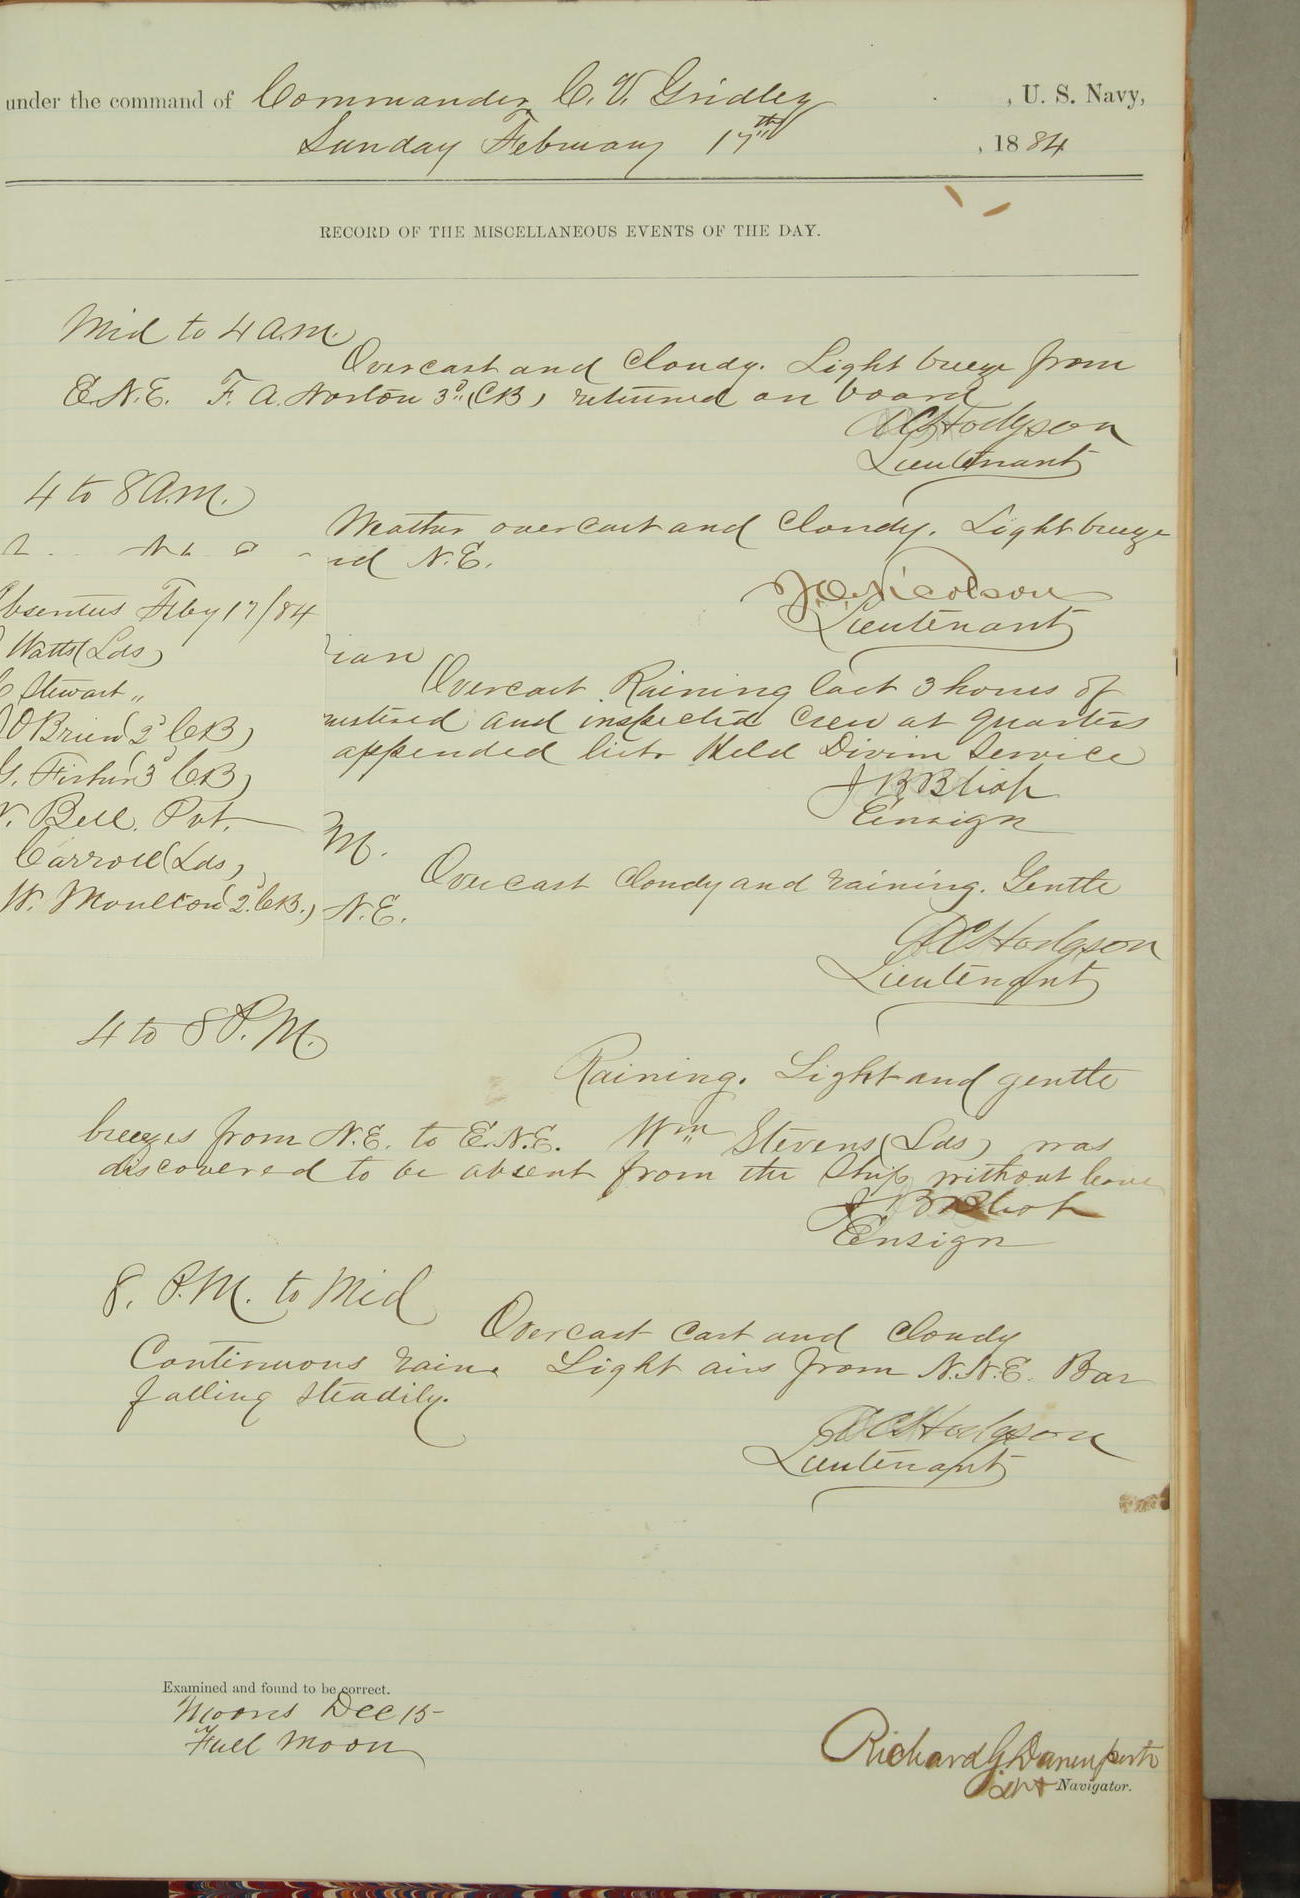 under the command of Commander C. V. Gridley , U. S. Navy,
Sunday February 17th , 1884
RECORD OF THE MISCELLANEOUS EVENTS OF THE DAY.
Mid to 4 A.M.
Overcast and Cloudy. Light breeze from
E.N.E. F. A. Norton 3d (CB) returned on board
A C Hodgson
Lieutenant
4 to 8 A.M.
Weather overcast and Cloudy. Light breeze
N.E.
J.O. Nicolson
Lieutenant
ian
Overcast Raining last 3 hours of
mustered and inspected crew at quarters
appended list. Held Divine Service
J B Blish
Ensign
M.
Overcast Cloudy and raining. Gentle
N.E.
A C Hodgson
Lieutenant
Absentees Feby 17/84
Watts (Lds)
Stewart "
O'Brien (2d CB)
G. Fisher (3d CB)
Bell. Pvt.
Carroll (Lds)
W. Moulton (2d CB.)
4 to 8 P.M.
Raining. Light and gentle
breezes from N.E. to E.N.E. Wm Stevens (Lds) was
discovered to be absent from the Ship without leave
J B Blish
Ensign
8. P.M. to Mid
Overcast cast and cloudy
Continuous rain. Light airs from N.N.E. Bar
falling steadily.
A C Hodgson
Lieutenant
Examined and found to be correct.
Moons Dec 15
Full Moon
Richard G Davenport
Lt Navigator.